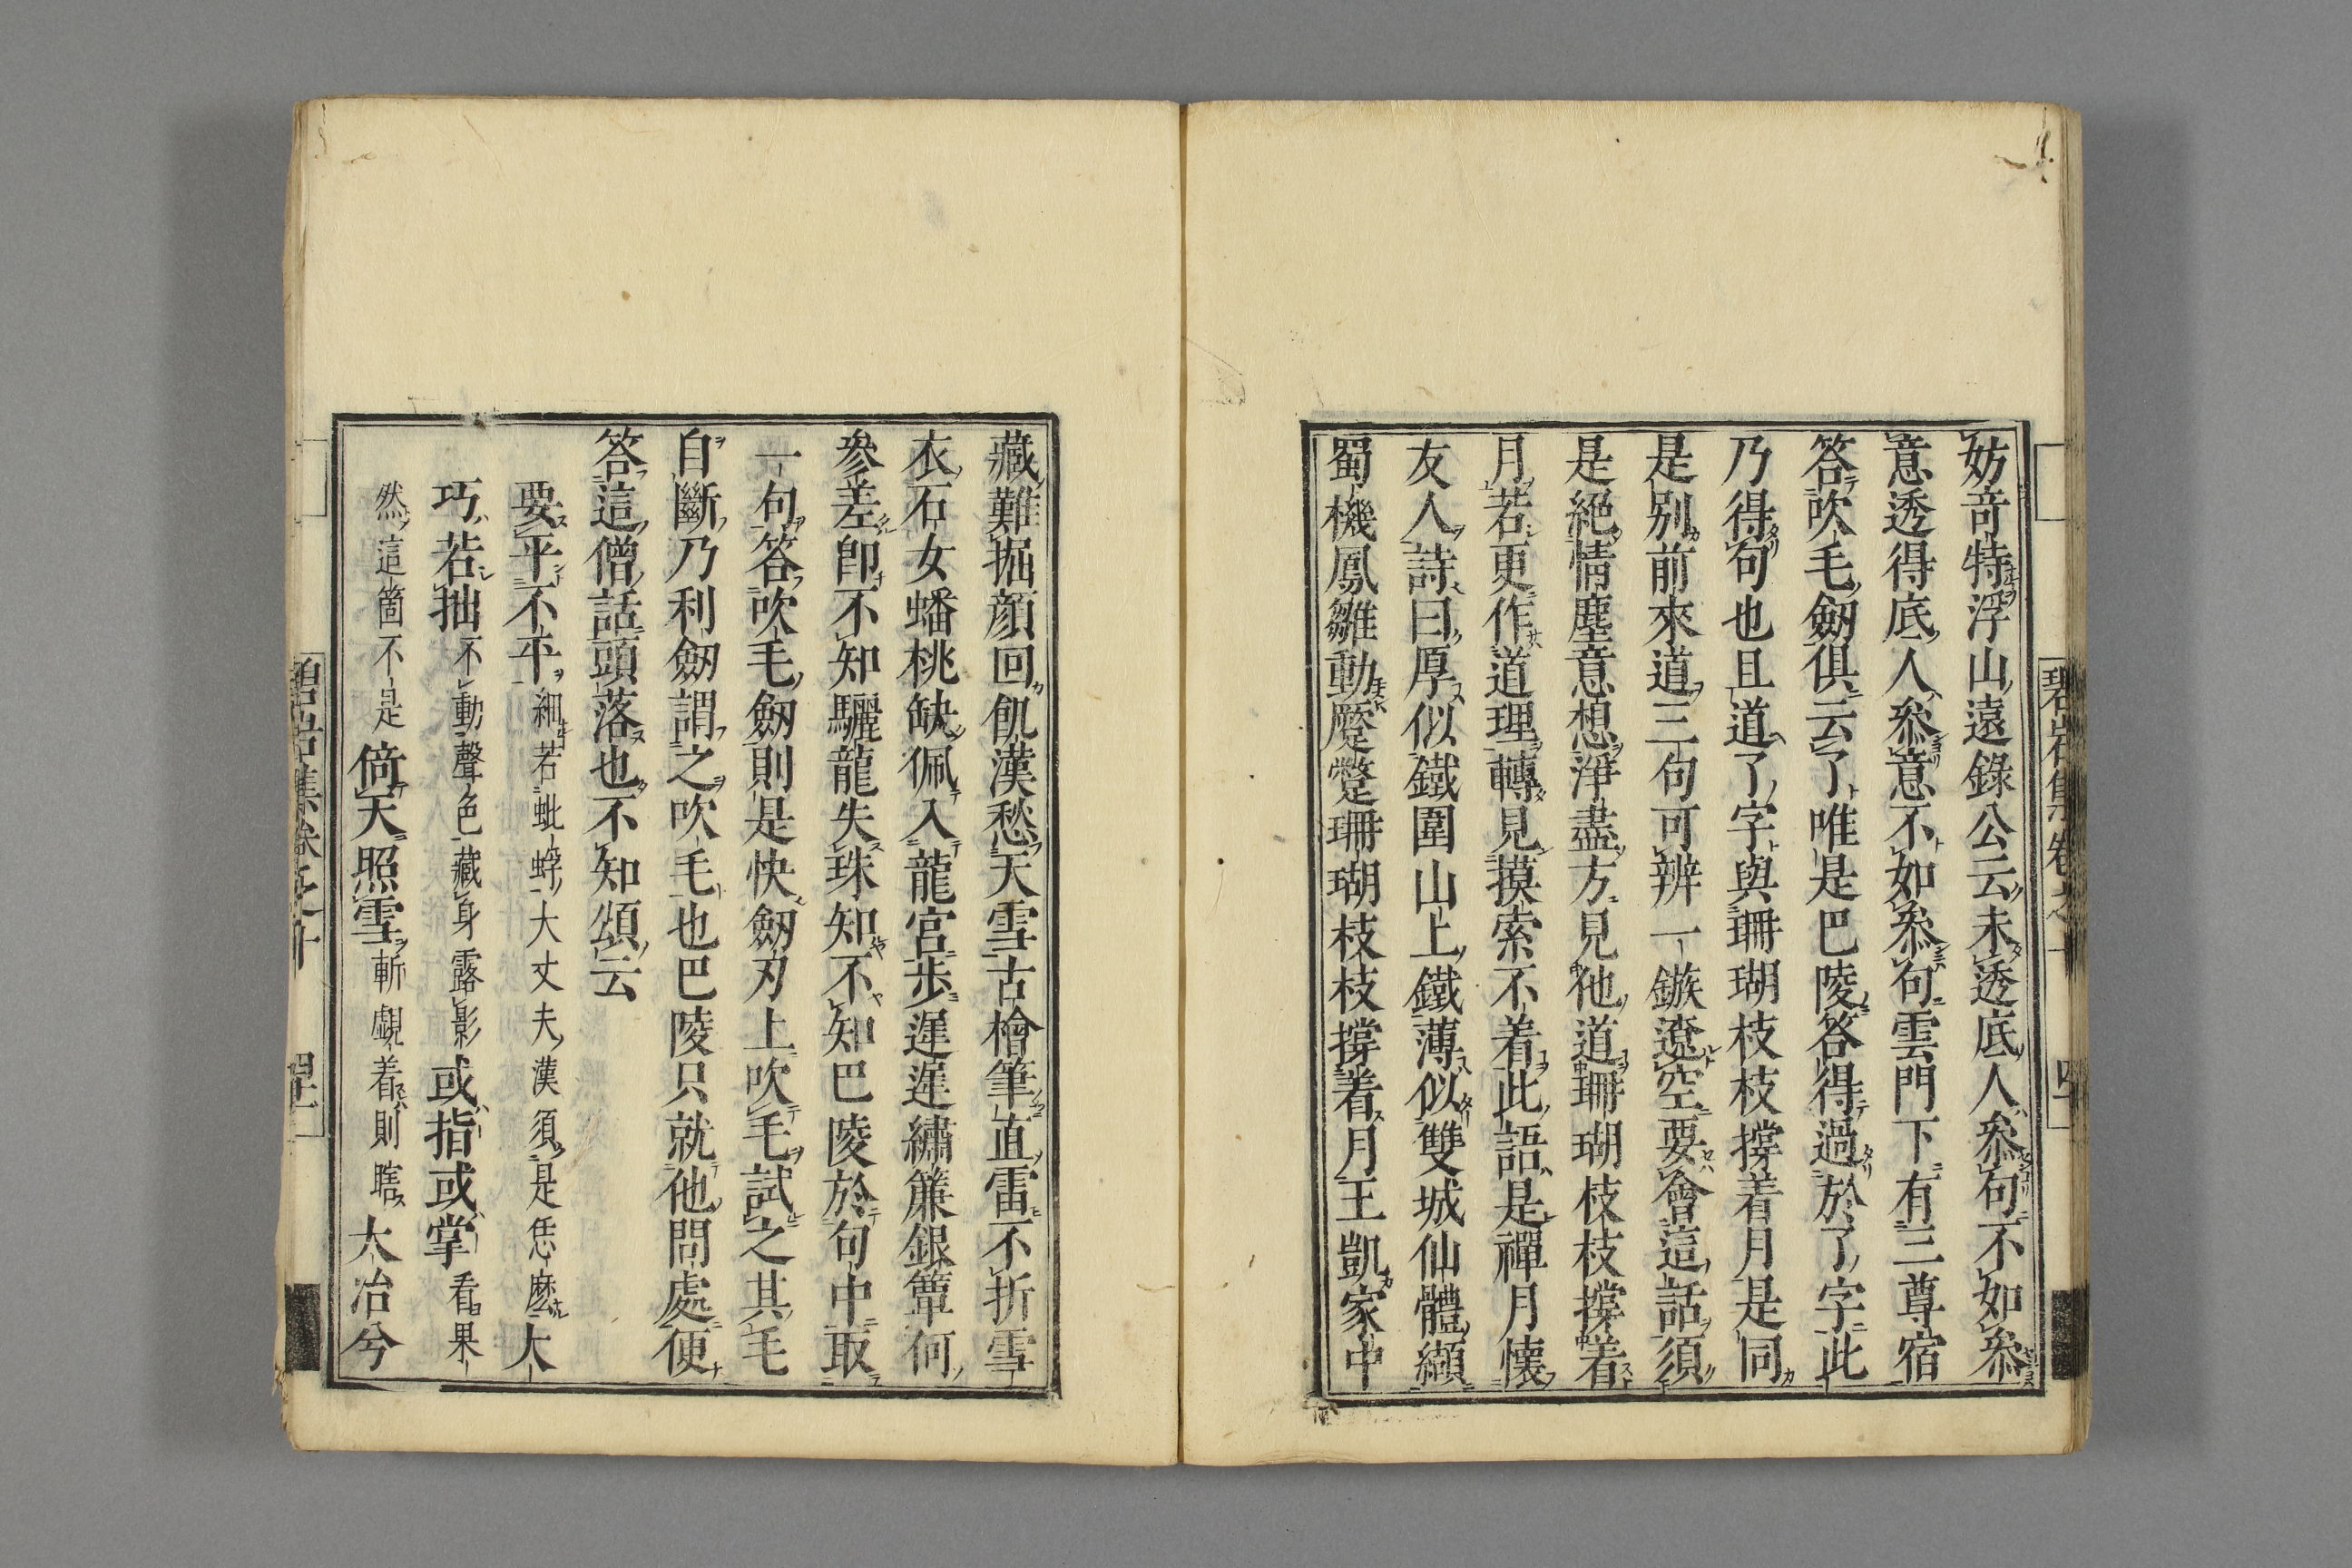 妨竒特浮山遠錄公云未透底人叅句不如叅
意透得底人叅意不如叅句雲門下有三尊宿
答吹毛劒俱云了唯是巴陵答得過於了字此
乃得句也且道了字與珊瑚枝枝撐着月是同
是别前來道三句可辨一鏃遼空要會這話須
是絕情塵意想淨盡方見他道珊瑚枝枝撐着
月若更作道理轉見摸索不着此語是禪月懷
友人詩曰厚似鐵圍山上鐵薄似雙城仙體纈
蜀機鳳雛動蹷躄珊瑚枝枝撐着月王凱家中
藏難掘顏回飢漢愁天雪古檜筆直雷不折雪
衣石女蟠桃缺佩入龍宮歩遲遲繡簾銀簟何
參差卽不知驪龍失珠知不知巴陵於句中取
一句答吹毛劒則是快劒刃上吹毛試之其毛
自斷乃利劒謂之吹毛也巴陵只就他問處便
答這僧話頭落也不知頌云
要平不平細若蚍蜉大丈夫漢須是恁麽大
巧若拙不動聲色藏身露影或指或掌看果
然這箇不是倚天照雪斬覷着則瞎大冶兮